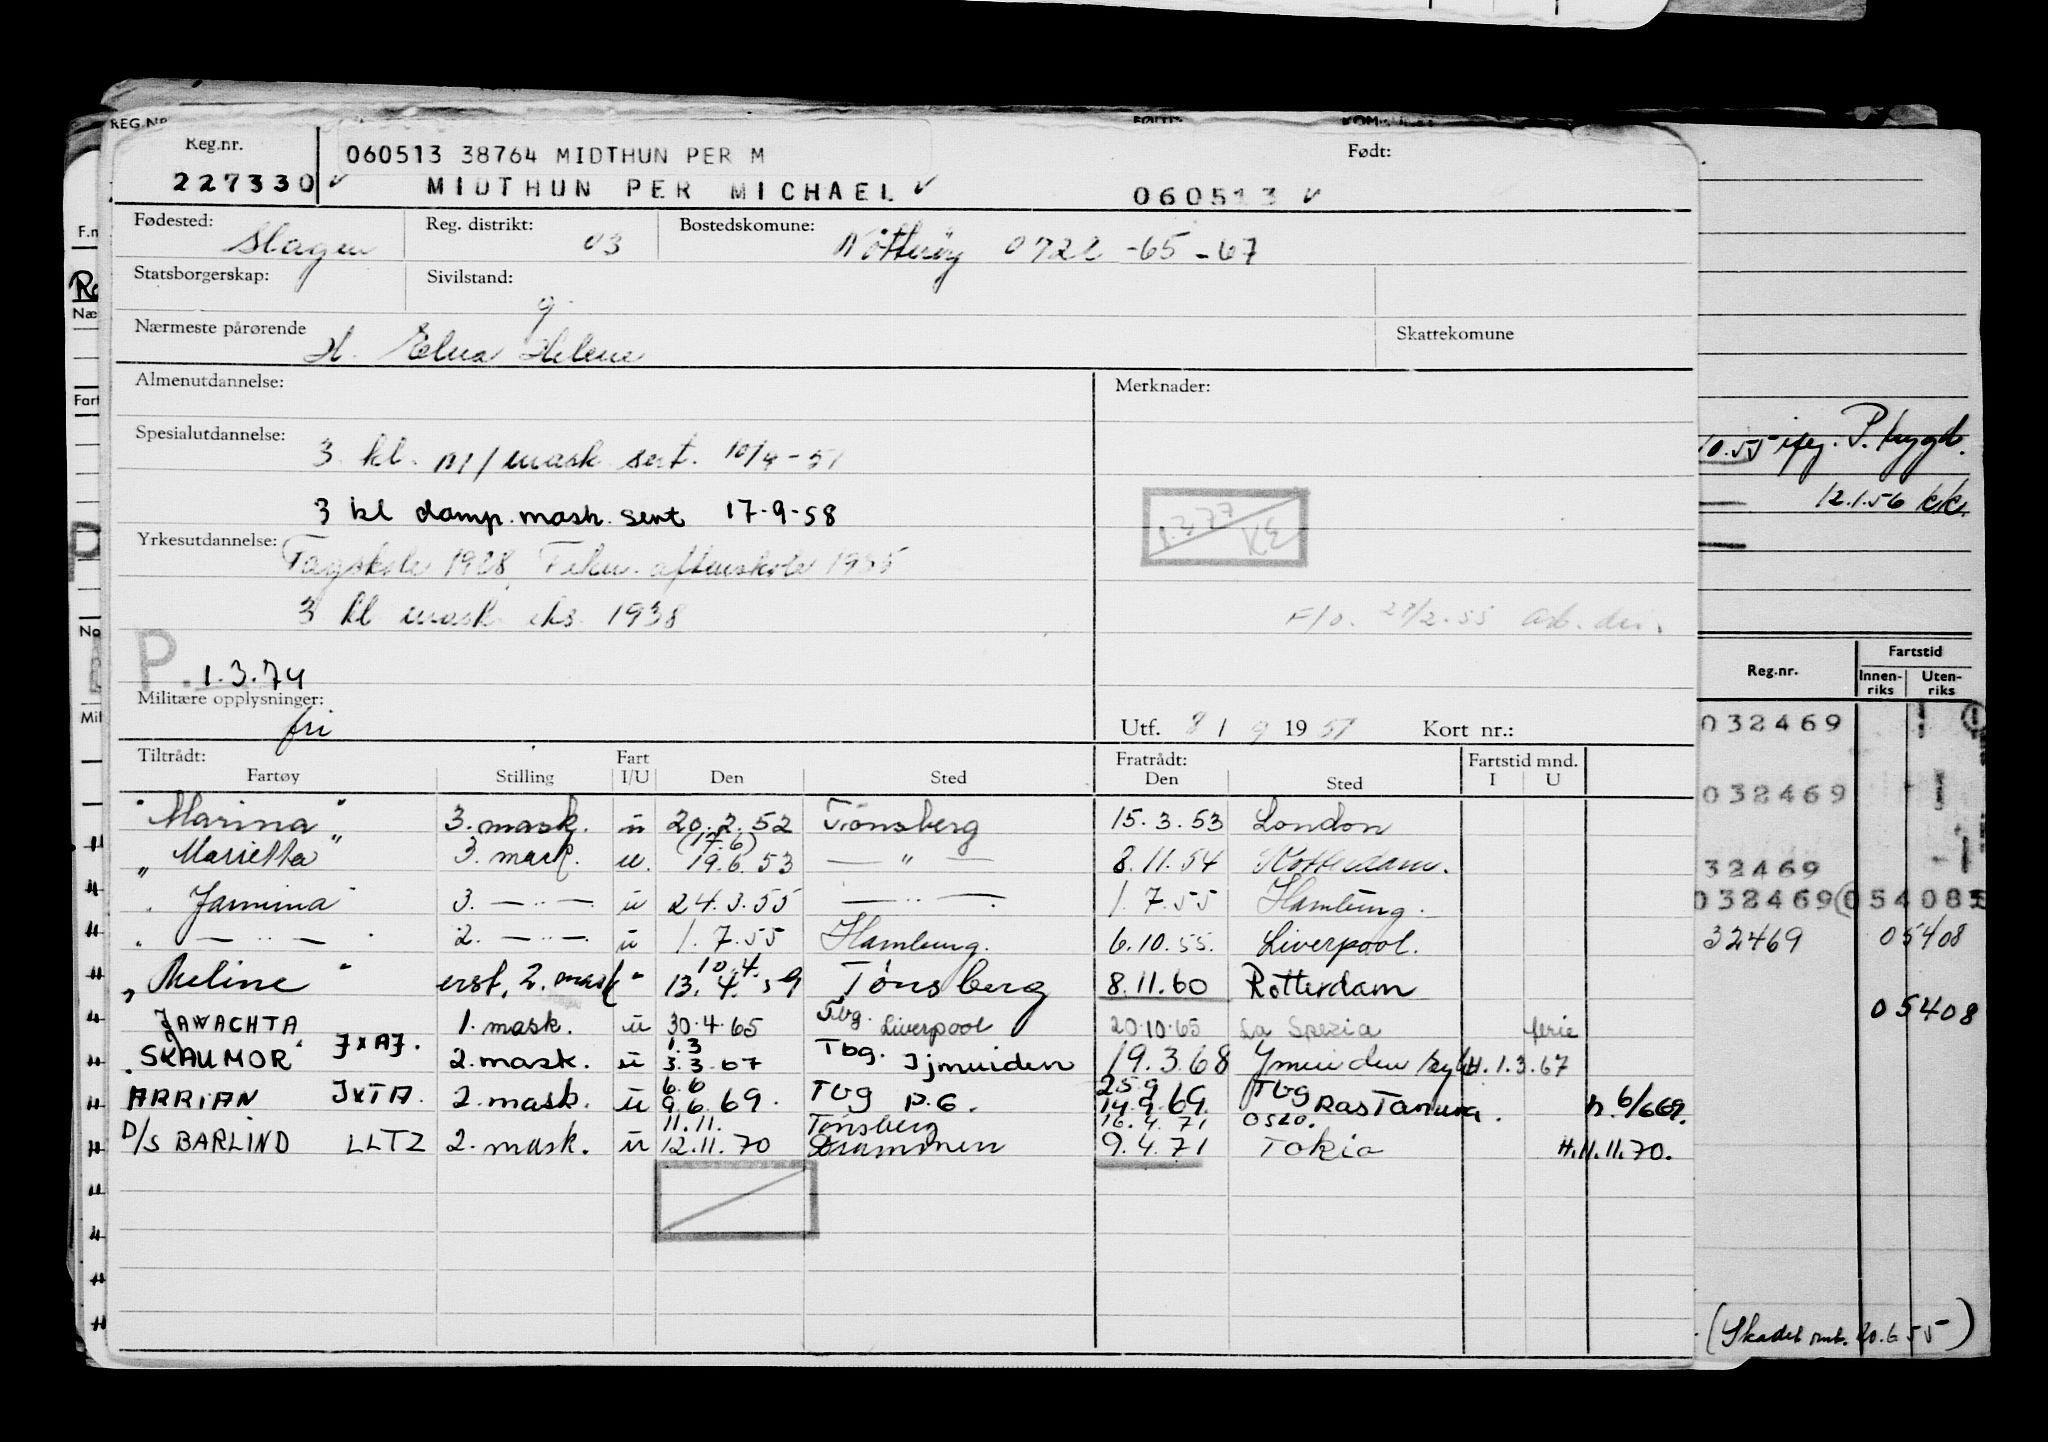 REG.NR
Reg.nr.
060513 38764 MIDTHUN PER M
Født:
227330 ✓ MIDTHUN PER MICHAEL ✓ 060513 ✓
Fødested: Slagen Reg. distrikt: 03 Bostedskomune: Nøtterøy 0722 -65-67
Statsborgerskap: Sivilstand: g.
Nærmeste pårørende H. Elna Helene Skattekomune
Almenutdannelse: Merknader:
Spesialutdannelse: 3 kl. m/mask sert. 10/4-51
3 kl damp.mask. sert 17-9-58
Yrkesutdannelse: Fagskole 1928 Tekn. aftenskole 1935
3 kl mask eks. 1938
F/o. 27/2-55
P. 1.3.74
Militære opplysninger: fri
Utf. 8 / 9 1951 Kort nr.:
Tiltrådt: Fart Fratrådt: Fartstid mnd.
Fartøy Stilling I/U Den Sted Den Sted I U
"Marina" 3. mask. u 20.2.52 Tönsberg 15.3.53 London
(17.6)
„Marietta" 3. mask. u. 19.6.53 — " — 8.11.54 Rotterdam.
Jamina" 3. — " — u 24.3.55 — " — 1.7.55 Hamburg.
" — " — 2. — " — u 1.7.55 Hamburg. 6.10.55. Liverpool.
10.4.
„Meline" erst. 2. mask " 13.4.59 Tønsberg 8.11.60 Rotterdam
JAWACHTA 1. mask. u 30.4.65 Tbg. Liverpool 20.10.65 La Spezia ferie
1.3
"SKAUMOR" JXAJ. 2. mask. u 3.3.67 Tbg. Ijmuiden 19.3.68 Ymuiden H. 1.3.67
6.6 25.9 Tbg
ARRIAN JXTA. 2. mask. u 9.6.69. Tbg P.G. 14.9.69. Ras Tanura. H. 6/669.
11.11. Tønsberg 16.4.71 OSLO.
D/S BARLIND LLTZ 2. mask. u 12.11.70 Drammen 9.4.71 Tokio H.11.11.70.
P. bygd.
12.1.56 kk.
Reg.nr. Fartstid
Innen-riks Uten-riks
032469
032469
32469
032469 (05408
32469 05408
05408
(Skadet 20.6.55)